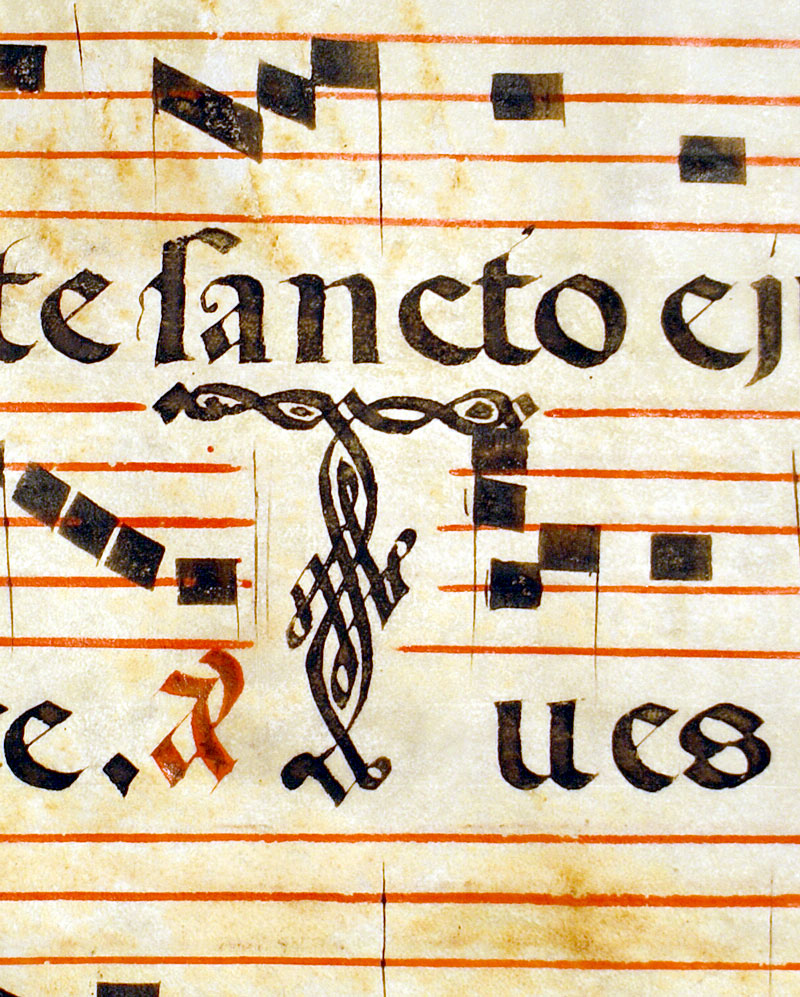 te ſancto ej
e. A T ues